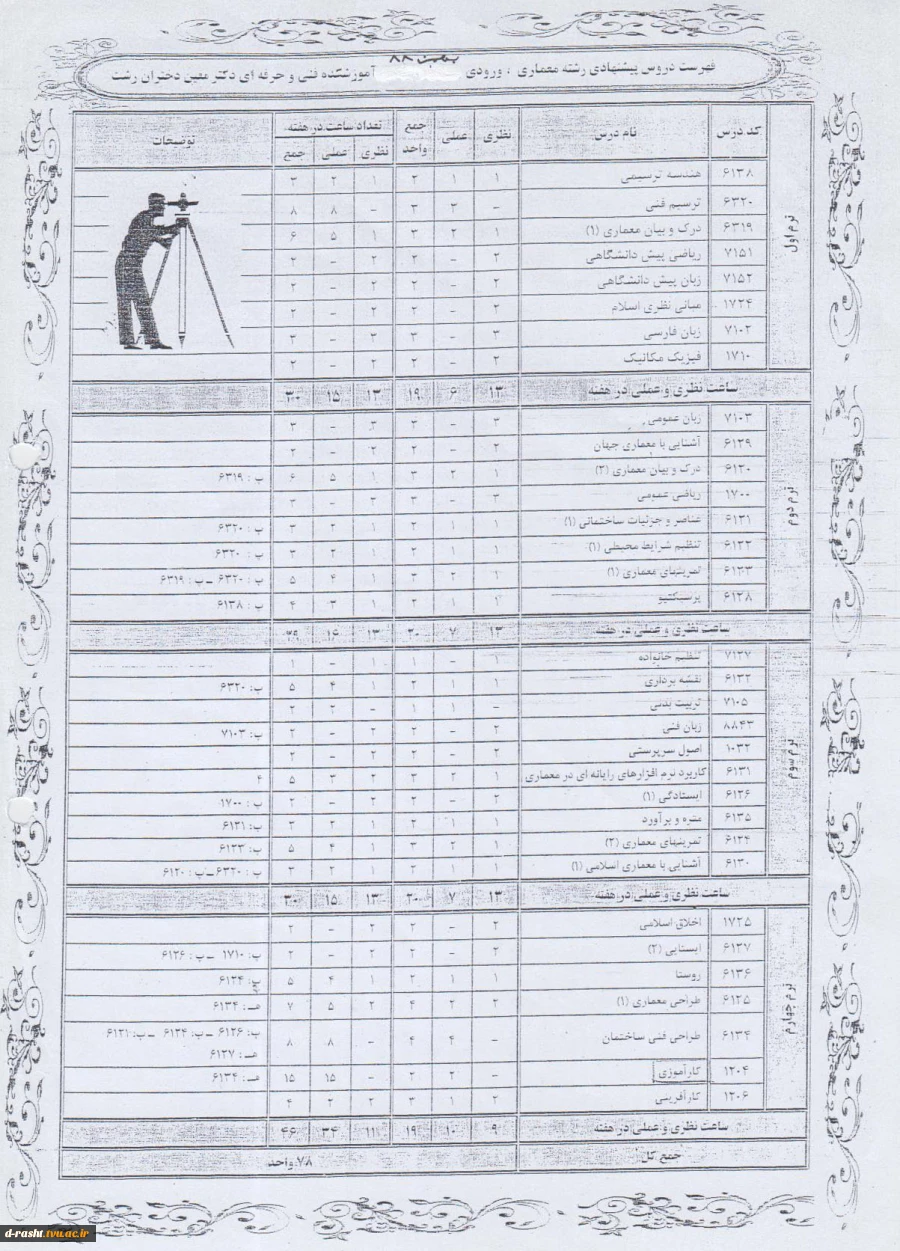 بهمن ۸۸
فهرست دروس پیشنهادی رشته معماری ، ورودی آموزشکده فنی و حرفه ای دکتر معین دختران رشت
کد درس نام درس نظری عملی جمع واحد تعداد ساعت در هفته توضیحات
نظری عملی جمع
ترم اول
۶۱۳۸ هندسه ترسیمی ۱ ۱ ۲ ۱ ۲ ۳
۶۳۲۰ ترسیم فنی - ۳ ۳ - ۸ ۸
۶۳۱۹ درک و بیان معماری (۱) ۱ ۲ ۳ ۱ ۵ ۶
۷۱۵۱ ریاضی پیش دانشگاهی ۲ - ۲ ۲ - ۲
۷۱۵۲ زبان پیش دانشگاهی ۲ - ۲ ۲ - ۲
۱۷۲۴ مبانی نظری اسلام ۲ - ۲ ۲ - ۲
۷۱۰۲ زبان فارسی ۳ - ۳ ۳ - ۳
۱۷۱۰ فیزیک مکانیک ۲ - ۲ ۲ - ۲
ساعت نظری و عملی در هفته ۱۳ ۶ ۱۹ ۱۳ ۱۵ ۳۰
ترم دوم
۷۱۰۳ زبان عمومی ۳ - ۳ ۳ - ۳
۶۱۲۹ آشنایی با معماری جهان ۲ - ۲ ۲ - ۲
۶۱۲۰ درک و بیان معماری (۲) ۱ ۲ ۳ ۱ ۵ ۶ پ : ۶۳۱۹
۱۷۰۰ ریاضی عمومی ۳ - ۳ ۳ - ۳
۶۱۲۱ عناصر و جزئیات ساختمانی (۱) ۱ ۱ ۲ ۱ ۲ ۳ پ : ۶۳۲۰
۶۱۲۲ تنظیم شرایط محیطی (۱) ۱ ۱ ۲ ۱ ۲ ۳ پ : ۶۳۲۰
۶۱۲۳ تمرینهای معماری (۱) ۱ ۲ ۳ ۱ ۴ ۵ پ : ۶۳۲۰ ـ پ : ۶۳۱۹
۶۱۲۸ پرسپکتیو ۱ ۱ ۲ ۱ ۳ ۴ پ : ۶۱۳۸
ساعت نظری و عملی در هفته ۱۳ ۷ ۲۰ ۱۳ ۱۶ ۲۹
ترم سوم
۷۱۲۷ تنظیم خانواده ۱ - ۱ ۱ - ۱
۶۱۳۲ نقشه برداری ۱ ۱ ۲ ۱ ۴ ۵ پ: ۶۳۲۰
۷۱۰۵ تربیت بدنی - ۱ ۱ - ۲ ۲
۸۸۴۳ زبان فنی ۲ - ۲ ۲ - ۲ پ: ۷۱۰۳
۱۰۳۲ اصول سرپرستی ۲ - ۲ ۲ - ۲
۶۱۳۱ کاربرد نرم افزارهای رایانه ای در معماری ۱ ۲ ۳ ۲ ۳ ۵ ۴
۶۱۲۶ ایستادگی (۱) ۲ - ۲ ۲ - ۲ پ : ۱۷۰۰
۶۱۳۵ متره و برآورد ۱ ۱ ۲ ۱ ۲ ۳ پ: ۶۱۲۱
۶۱۲۴ تمرینهای معماری (۲) ۱ ۲ ۳ ۱ ۴ ۵ پ: ۶۱۲۳
۶۱۳۰ آشنایی با معماری اسلامی (۱) ۱ ۱ ۲ ۱ ۲ ۳ پ : ۶۳۲۰ـ پ : ۶۱۲۰
ساعت نظری و عملی در هفته ۱۳ ۷ ۲۰ ۱۳ ۱۵ ۳۰
ترم چهارم
۱۷۲۵ اخلاق اسلامی ۲ - ۲ ۲ - ۲
۶۱۲۷ ایستایی (۲) ۲ - ۲ ۲ - ۲ پ: ۱۷۱۰ ـ پ : ۶۱۲۶
۶۱۳۶ روستا ۱ ۱ ۲ ۱ ۴ ۵ پ: ۶۱۲۴
۶۱۲۵ طراحی معماری (۱) ۲ ۲ ۴ ۲ ۵ ۷ هـ : ۶۱۳۴
۶۱۳۴ طراحی فنی ساختمان - ۴ ۴ - ۸ ۸ پ: ۶۱۲۶ ـ پ: ۶۱۲۴ ـ پ: ۶۱۲۱
هـ : ۶۱۲۷
۱۲۰۴ کارآموزی - ۲ ۲ - ۱۵ ۱۵ هـ : ۶۱۳۴
۱۲۰۶ کارآفرینی ۲ ۱ ۳ ۲ ۲ ۴
ساعت نظری و عملی در هفته ۹ ۱۰ ۱۹ ۱۱ ۳۴ ۴۶
جمع کل ۷۸ واحد
d-rasht.tvu.ac.ir